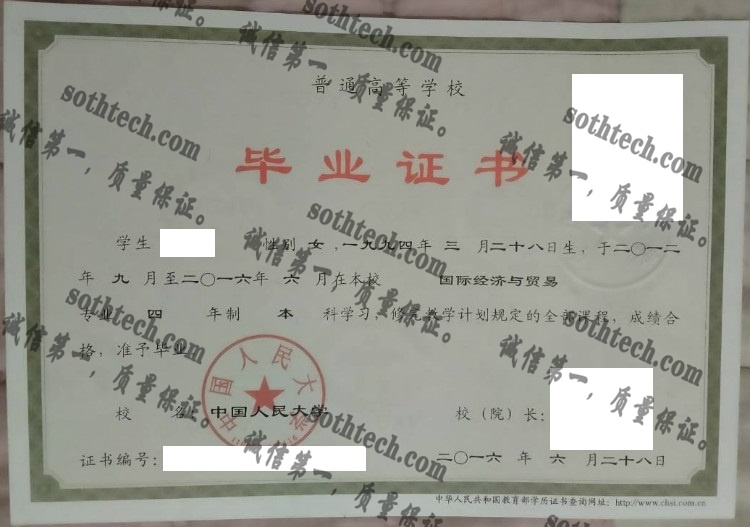 普通高等学校
毕业证书
学生 性别 女，一九九四年 三 月二十八日生，于二〇一二
年 九 月至二〇一六年 六 月在本校 国际经济与贸易
专业 四 年制 本 科学习，修完教学计划规定的全部课程，成绩合
格，准予毕业。
校 名：中国人民大学
校（院）长：
中国人民大学
证书编号：
二〇一六 年 六 月二十八日
中华人民共和国教育部学历证书查询网址：http://www.chsi.com.cn
sothtech.com
诚信第一，质量保证。
sothtech.com
诚信第一，质量保证。
sothtech.com
诚信第一，质量保证。
sothtech.com
诚信第一，质量保证。
sothtech.com
诚信第一，质量保证。
sothtech.com
诚信第一，质量保证。
sothtech.com
诚信第一，质量保证。